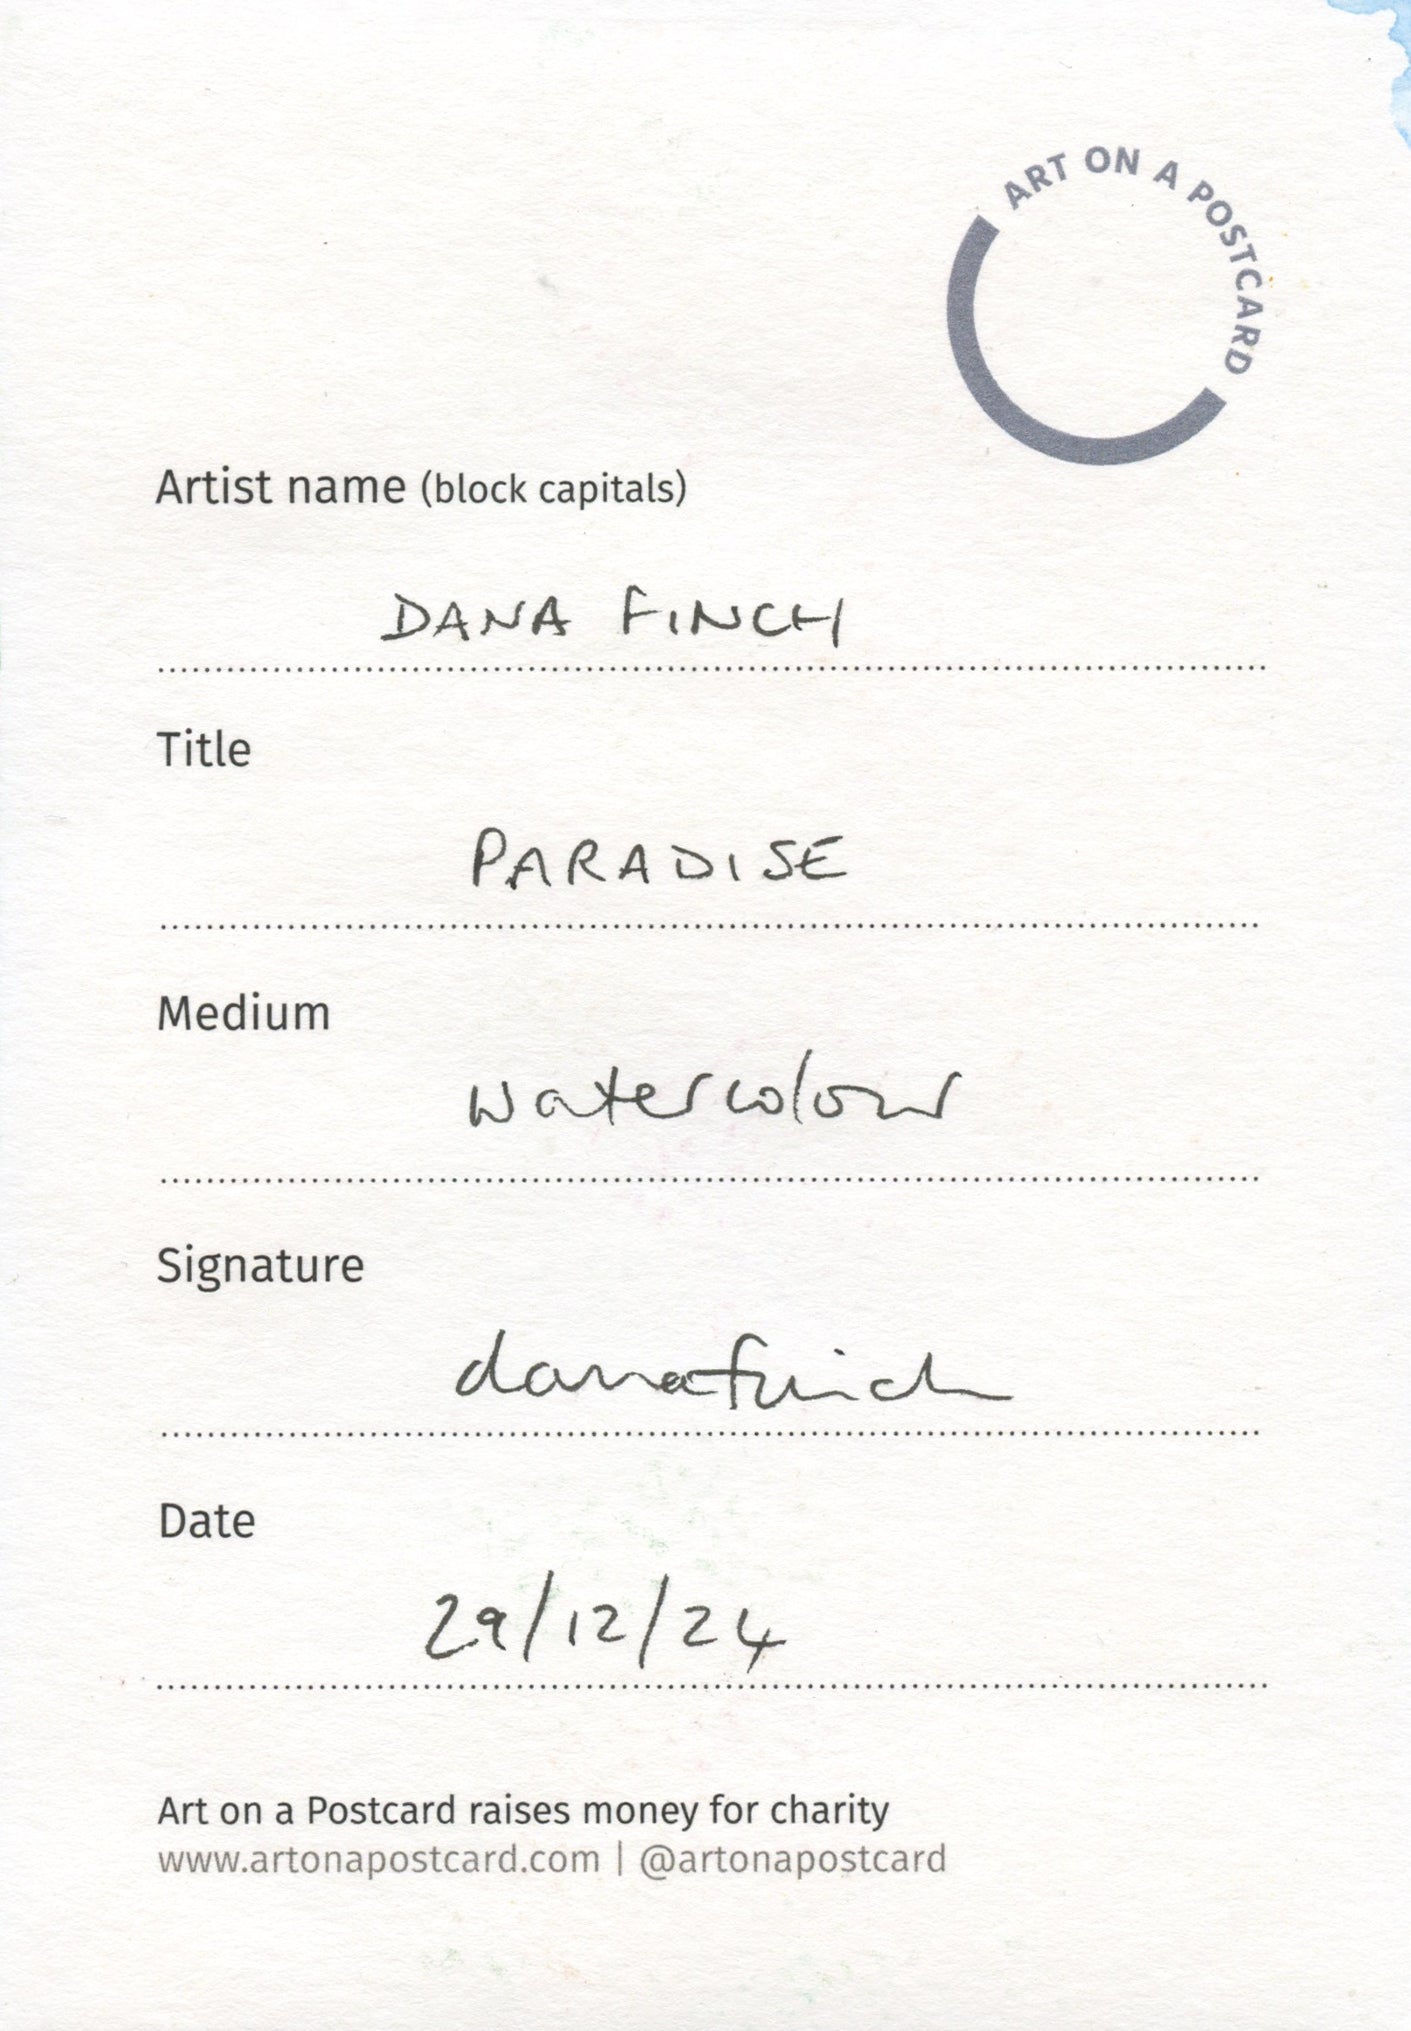 ART ON A POSTCARD
Artist name (block capitals)
DANA FINCH
Title
PARADISE
Medium
watercolour
Signature
danafinch
Date
29/12/24
Art on a Postcard raises money for charity
www.artonapostcard.com | @artonapostcard